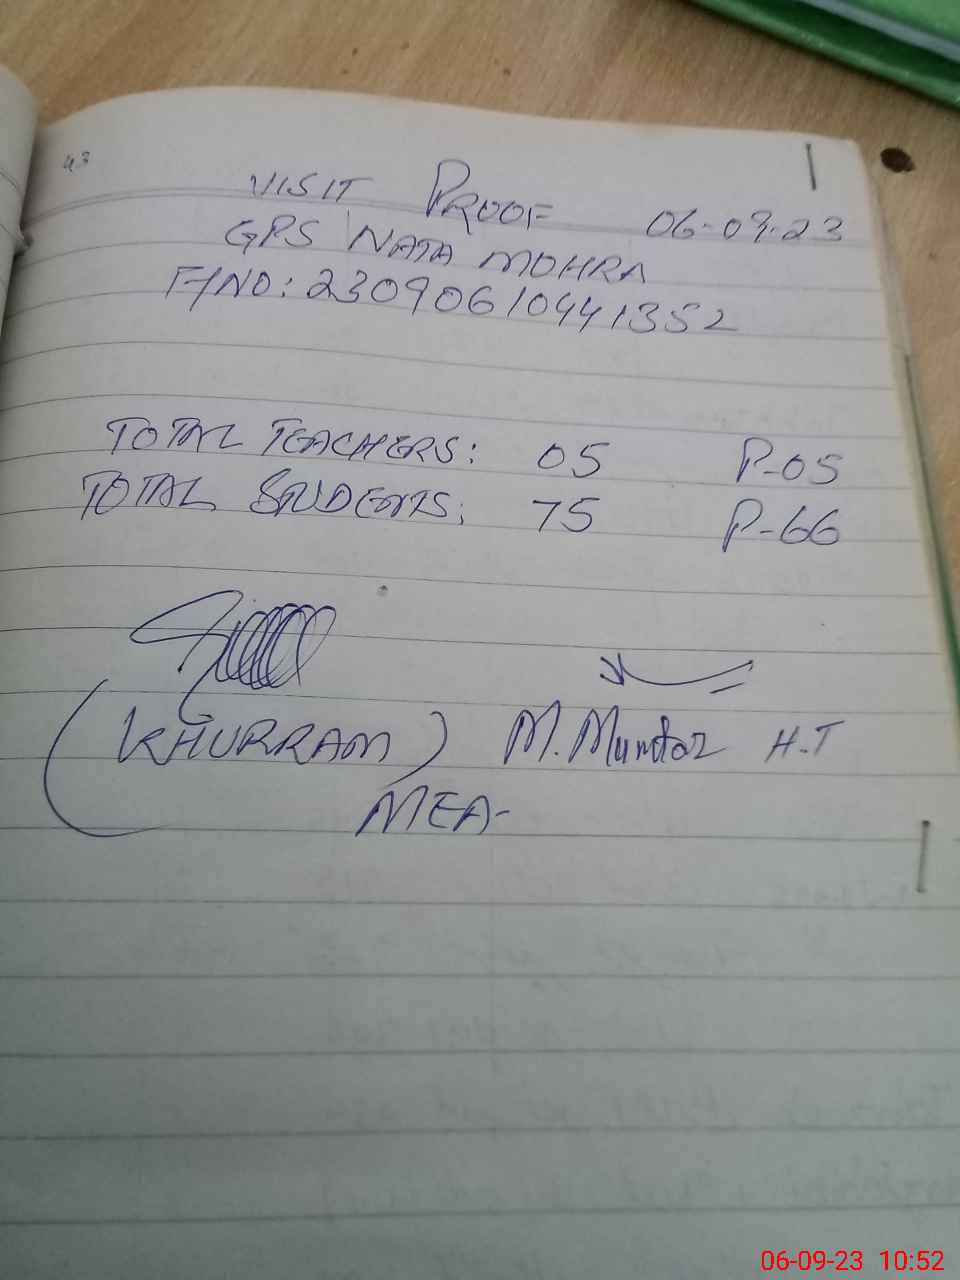 43
VISIT PROOF 06-09-23
GPS NATA MOHRA
F/NO: 23090610441352
TOTAL TEACHERS: 05 P-05
TOTAL STUDENTS: 75 P-66
(KHURRAM) M. Mumtaz H.T
MEA-
06-09-23 10:52